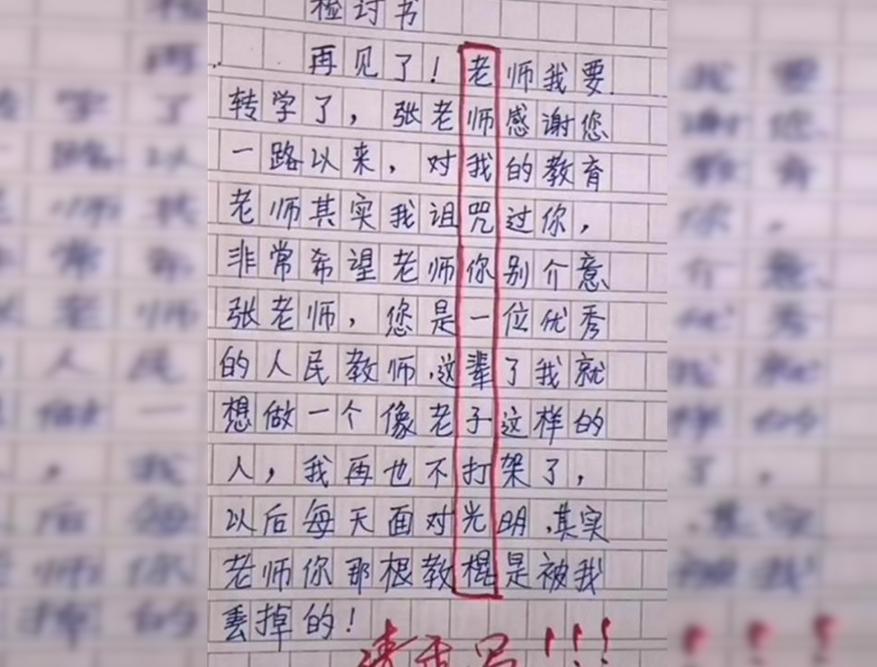 检讨书
再见了！老师我要
转学了，张老师感谢您
一路以来，对我的教育
老师其实我诅咒过你，
非常希望老师你别介意
张老师，您是一位优秀
的人民教师，这辈了我就
想做一个像老子这样的
人，我再也不打架了，
以后每天面对光明，其实
老师你那根教棍是被我
丢掉的！
请重写!!!